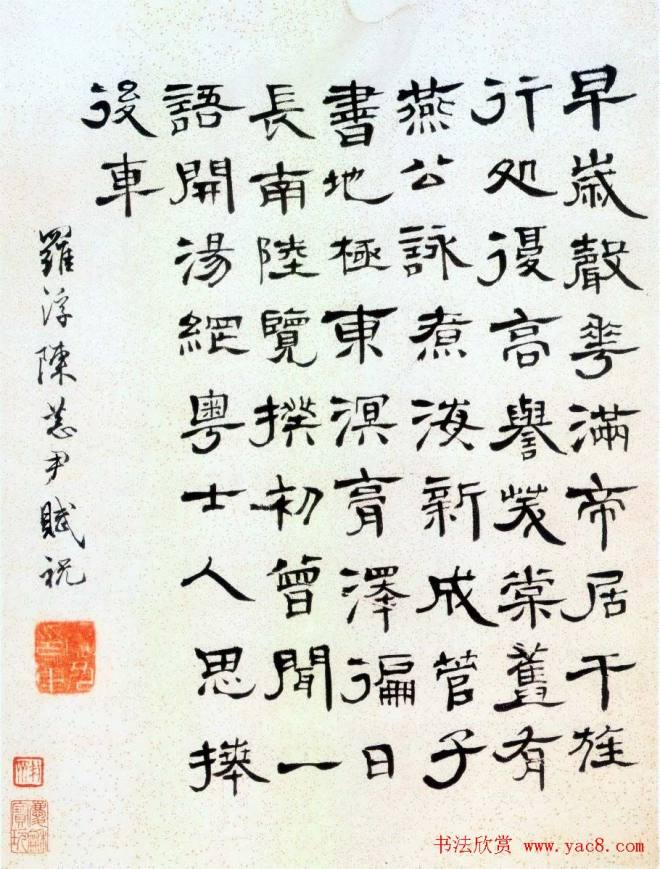 早歲聲華滿帝居干旌
行処復高譽茇棠舊有
燕公詠煮海新成管子
書地極東溟膏澤徧日
長南陸覽揆初曾聞一
語開湯網粵士人思捧
後車
羅浮陳恭尹賦祝
书法欣赏 www.yac8.com